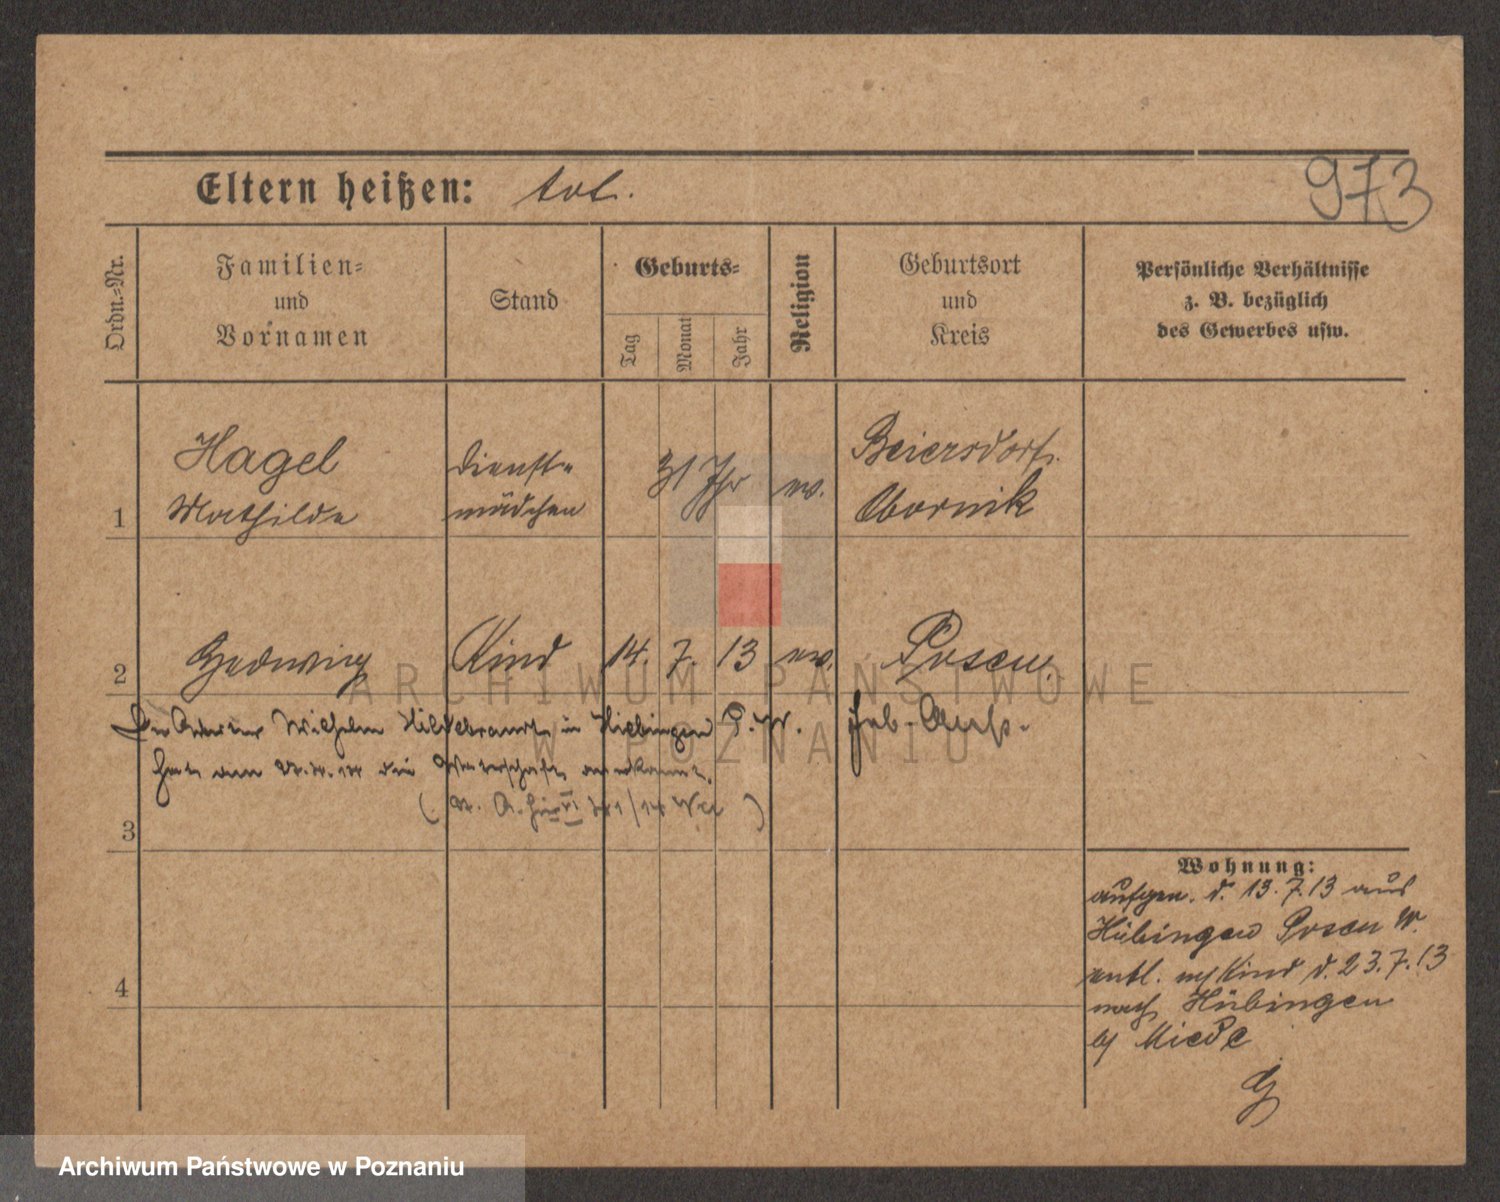 973
Eltern heißen: tot.
Ordn.-Nr.
Familien-
und
Vornamen
Stand
Geburts-
Tag
Monat
Jahr
Religion
Geburtsort
und
Kreis
Persönliche Verhältnisse
z. B. bezüglich
des Gewerbes usw.
1
Hagel
Mathilde
Dienst-
mädchen
31 Jhr
ev.
Beiersdorf.
Obornik
2
Hedwig
Kind
14. 7. 13
ev.
Posen.
Der Wilhelm Hildebrandt in Hübingen P. W.
hat am die Vaterschaft anerkannt.
3
Wohnung:
aufgen. d. 13. 7. 13 aus
Hübingen Posen W.
entl. m/ Kind d. 23. 7. 13
nach Hübingen
b/
4
ARCHIWUM PAŃSTWOWE
W POZNANIU
Archiwum Państwowe w Poznaniu